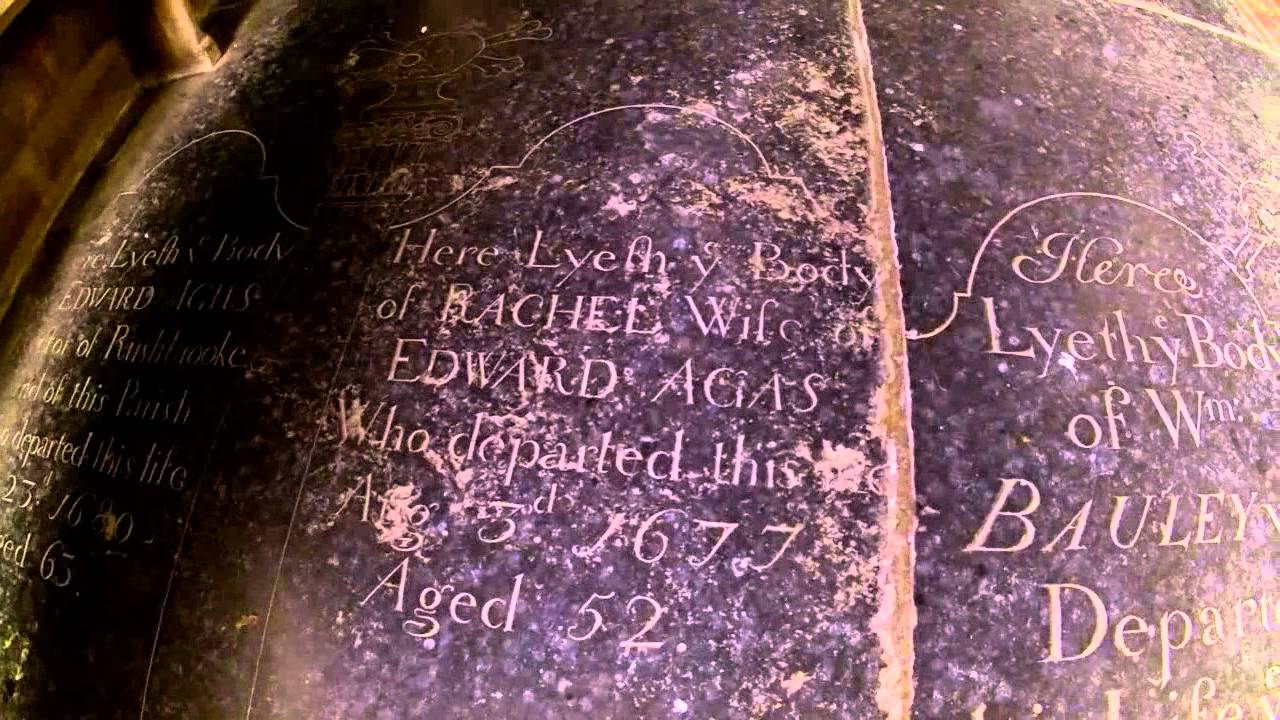 Lyeth yͤ Body
EDWARD AGAS
of Rushbrooke
of this Parish
departed this life
23ᵈ 1680
63
Here Lyeth yͤ Body
of RACHEL Wife of
EDWARD AGAS
Who departed this
Aug 3ᵈ 1677
Aged 52.
Here
Lyeth yͤ Body
of Wᵐ
BAULEY
Depart
Life